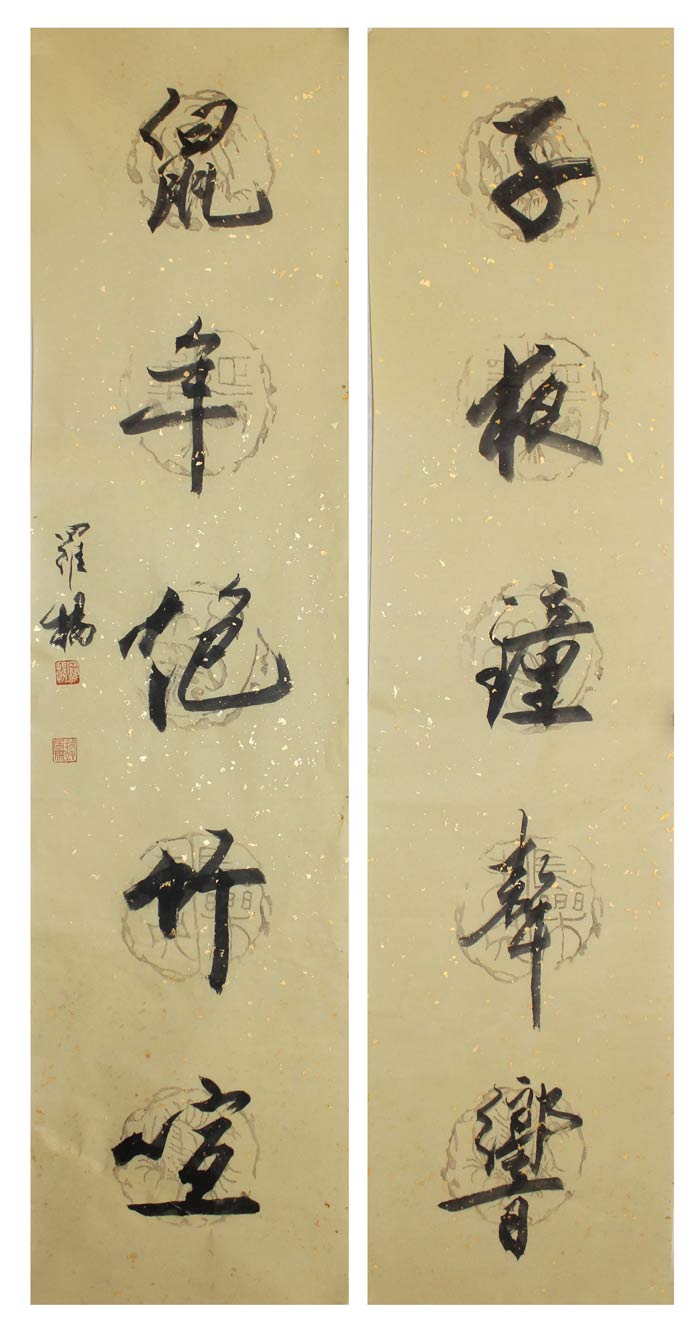 子夜鐘聲響
鼠年炮竹喧
羅楊